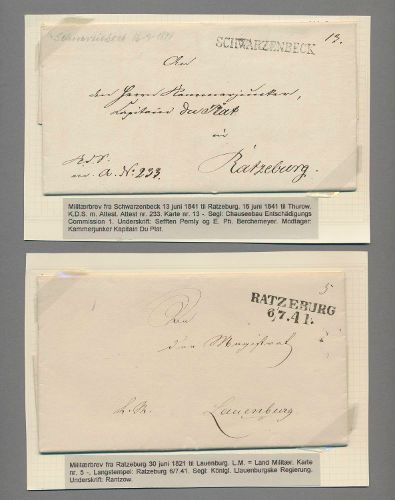 Schwarzenbeck 13-6-1841
SCHWARZENBECK
13.
An
den Herrn Kammerjunker,
Capitain du Plat
in
Ratzeburg.
K.D.S.
m. A. No 233.
Militærbrev fra Schwarzenbeck 13 juni 1841 til Ratzeburg, 16 juni 1841 til Thurow.
K.D.S. m. Attest. Attest nr. 233. Karte nr. 13 - Segl: Chauseebau Entschädigungs
Commission 1. Underskrift: Sefften Pemly og E. Ph. Berchemeyer. Modtager:
Kammerjunker Kapitain Du Plat.
5
RATZEBURG
6/7.41.
An
den Magistrat
L. M.
Lauenburg
Militærbrev fra Ratzeburg 30 juni 1821 til Lauenburg. L.M. = Land Militær. Karte
nr. 5 -, Langstempel: Ratzeburg 6/7.41. Segl: Königl. Llauenburgske Regierung.
Underskrift: Rantzow.